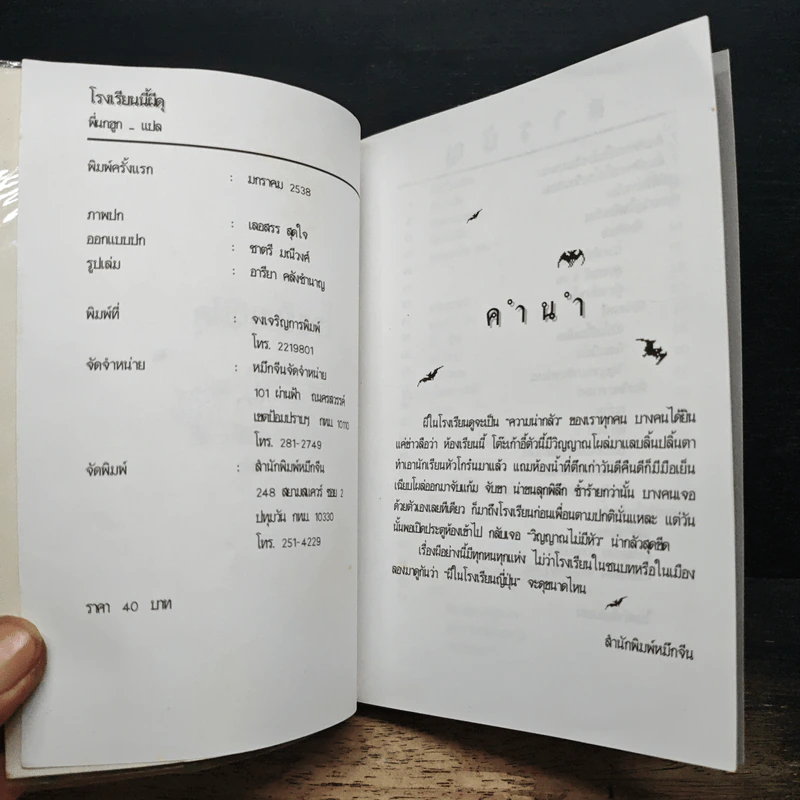 โรงเรียนนี้ผีดุ
พี่นกฮูก _ แปล
พิมพ์ครั้งแรก : มกราคม 2538
ภาพปก : เลอสรร สุดใจ
ออกแบบปก : ชาตรี มณีวงศ์
รูปเล่ม : อารียา คลังชำนาญ
พิมพ์ที่ : จงเจริญการพิมพ์
โทร. 2219801
จัดจำหน่าย : หมึกจีนจัดจำหน่าย
101 ผ่านฟ้า ถนครสวรรค์
เขตป้อมปราบฯ กทม 10110
โทร. 281-2749
จัดพิมพ์ : สำนักพิมพ์หมึกจีน
248 สยามสแควร์ ซอย 2
ปทุมวัน กทม 10330
โทร. 251-4229
ราคา 40 บาท
คำนำ
ผีในโรงเรียนดูจะเป็น "ความน่ากลัว" ของเราทุกคน บางคนได้ยิน
แค่ข่าวลือว่า ห้องเรียนนี้ โต๊ะเก้าอี้ตัวนี้มีวิญญาณโผล่มาแลบลิ้นปลิ้นตา
ทำเอานักเรียนหัวโกร๋นมาแล้ว แถมห้องน้ำที่ตึกเก่าวันดีคืนดีก็มีมือเย็น
เฉียบโผล่ออกมาจับแก้ม จับขา น่าขนลุกพิลึก ซ้ำร้ายกว่านั้น บางคนเจอ
ด้วยตัวเองเลยทีเดียว ก็มาถึงโรงเรียนก่อนเพื่อนตามปกตินั่นแหละ แต่วัน
นั้นพอเปิดประตูห้องเข้าไป กลับเจอ "วิญญาณไม่มีหัว" น่ากลัวสุดขีด
เรื่องผีอย่างนี้มีทุกหนทุกแห่ง ไม่ว่าโรงเรียนในชนบทหรือในเมือง
ลองมาดูกันว่า "ผีในโรงเรียนญี่ปุ่น" จะดุขนาดไหน
สำนักพิมพ์หมึกจีน